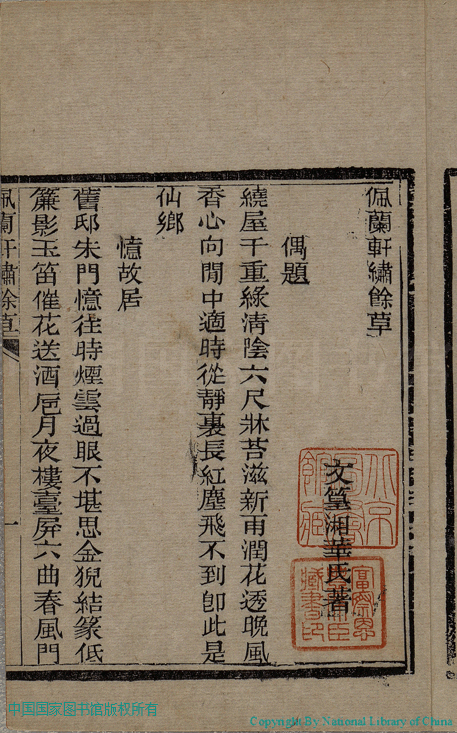 佩蘭軒繡餘草
文篁湘華氏著
偶題
繞屋千重綠淸陰六尺牀苔滋新雨潤花透晚風
香心向閒中適時從靜裏長紅塵飛不到卽此是
仙鄉
憶故居
舊邸朱門憶往時煙雲過眼不堪思金猊結篆低
簾影玉笛催花送酒巵月夜樓臺屏六曲春風門
佩蘭軒繡餘草
一
北京
圖書
館藏
富察恩
豐席臣
藏書印
中国国家图书馆版权所有
Copyright By National Library of China